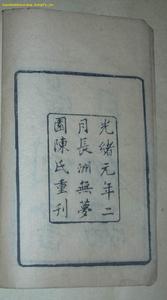 光緒元年二
月長洲無夢
園陳氏重刊